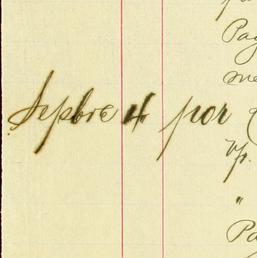 Pag
me
Sepbre 4 por
Vp.
"
Pa